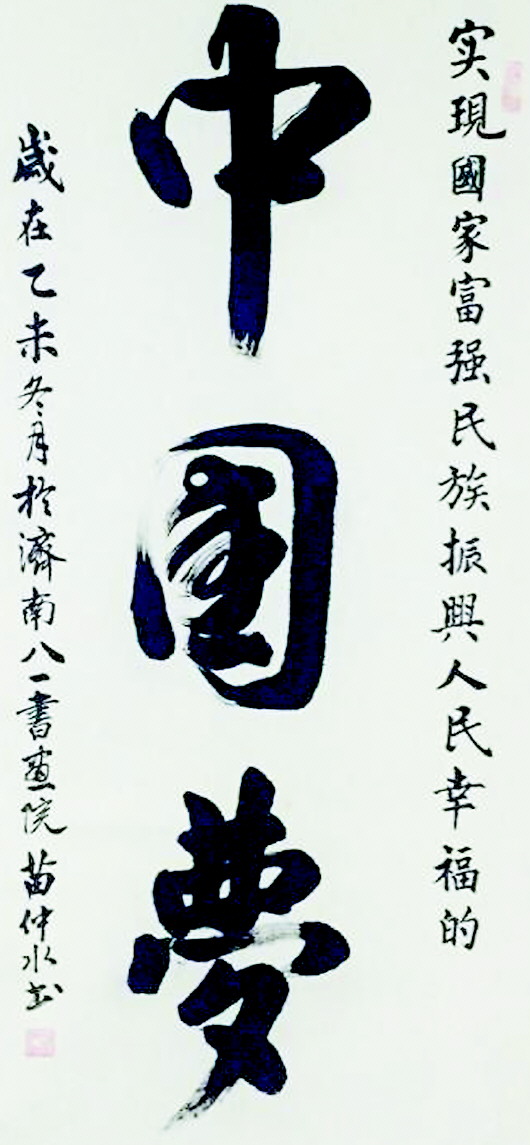 实現國家富强民族振興人民幸福的
中国夢
歲在乙未冬月於濟南八一書畫院苗仲水书